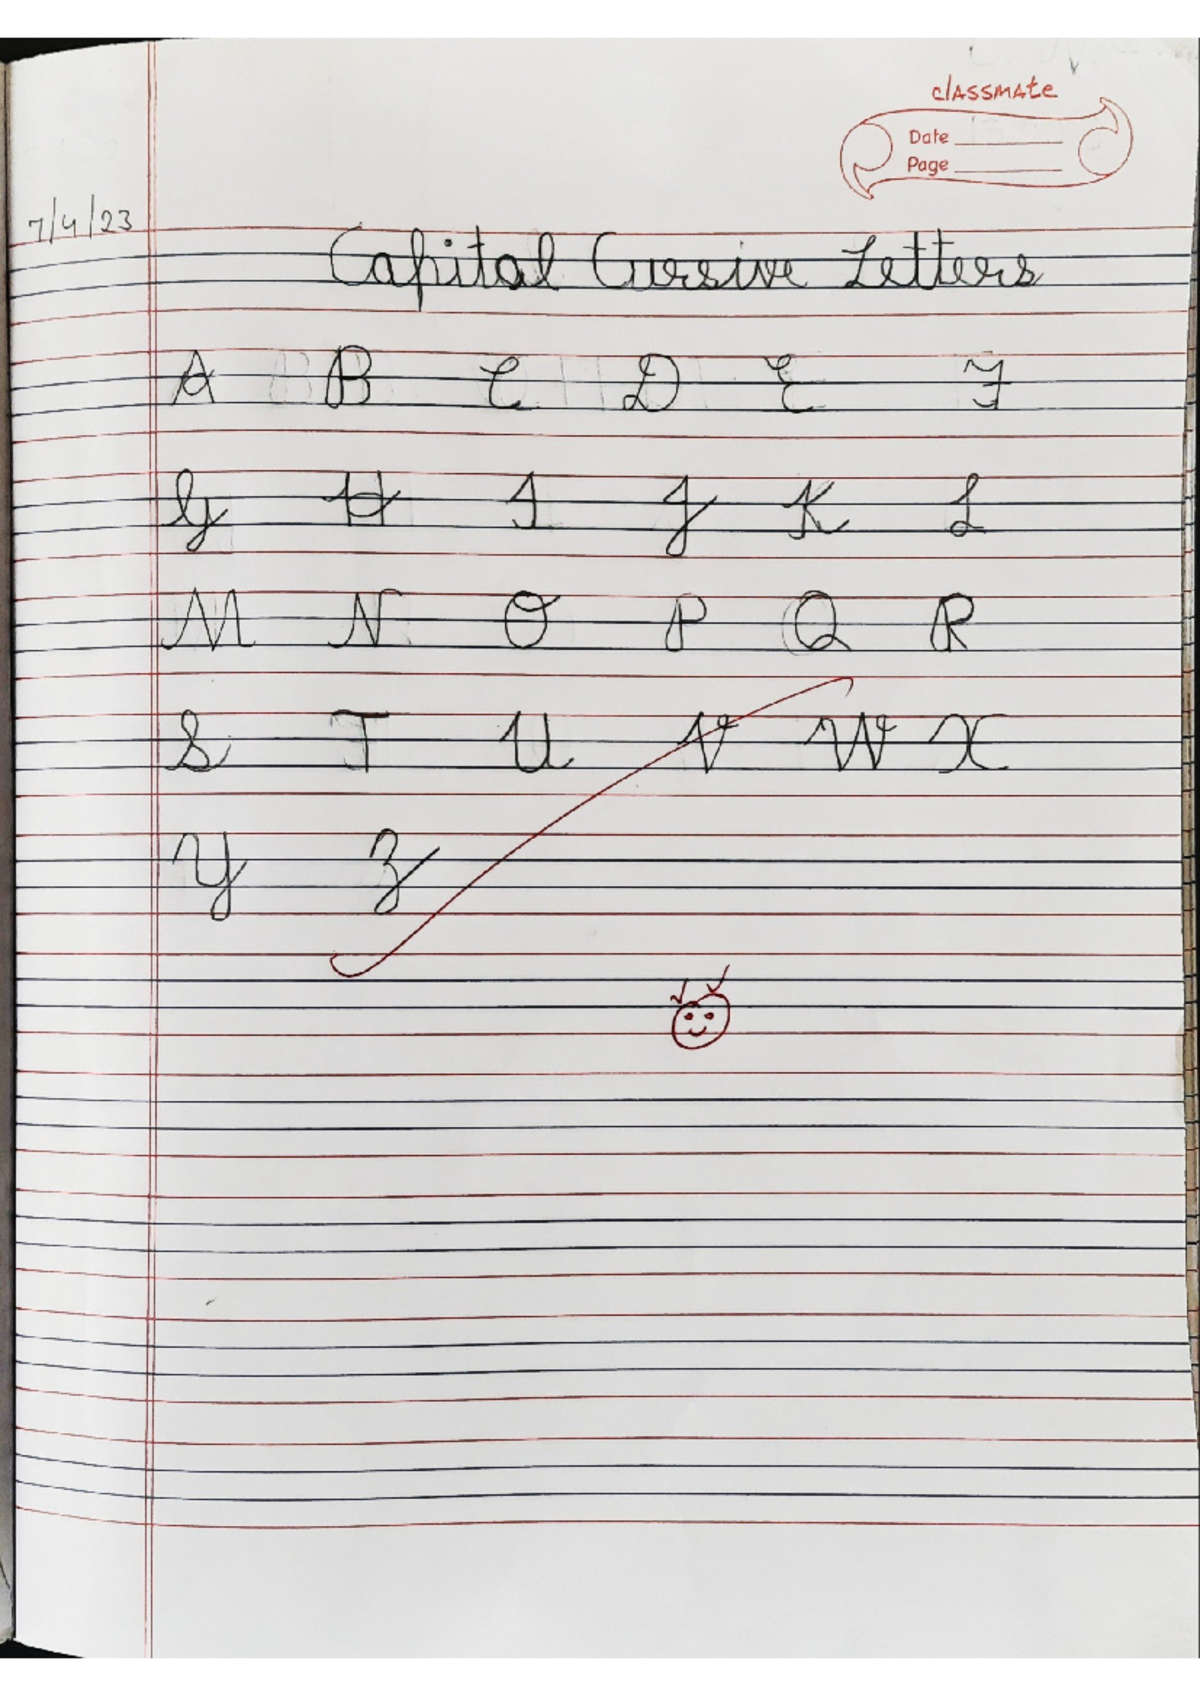 classmate
Date
Page
7/4/23
Capital Cursive Letters
A B C D E F
G H I J K L
M N O P Q R
S T U V W X
Y Z